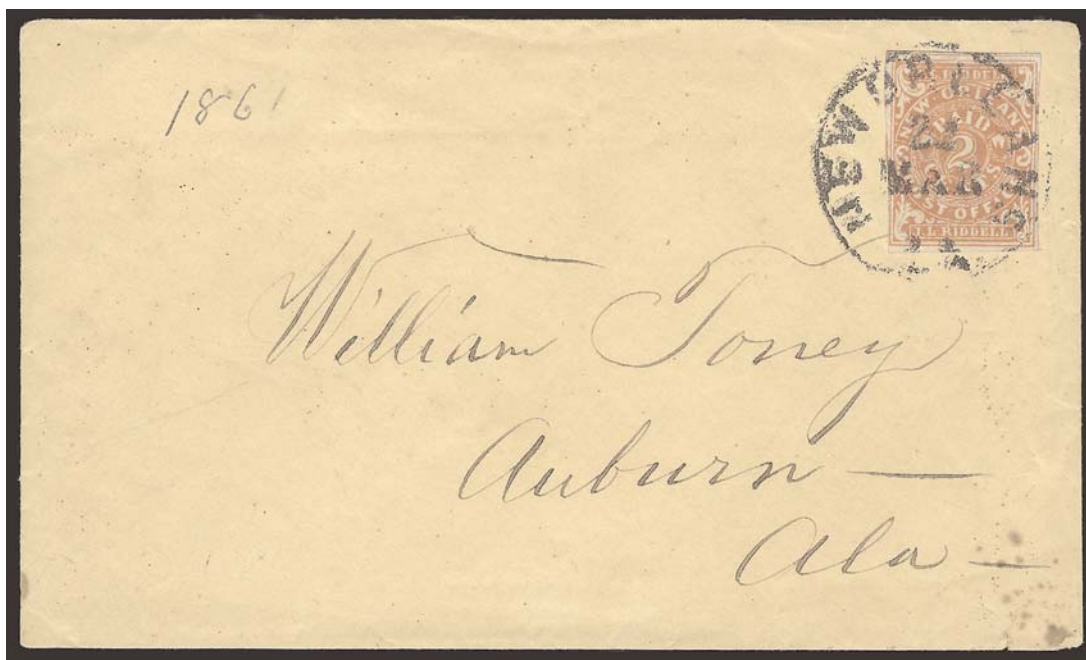 1861
NEW ORLEANS
MAR
NEW ORLEANS
PAID
2
POST OFFICE
J.L. RIDDELL
William Toney
Auburn —
Ala —